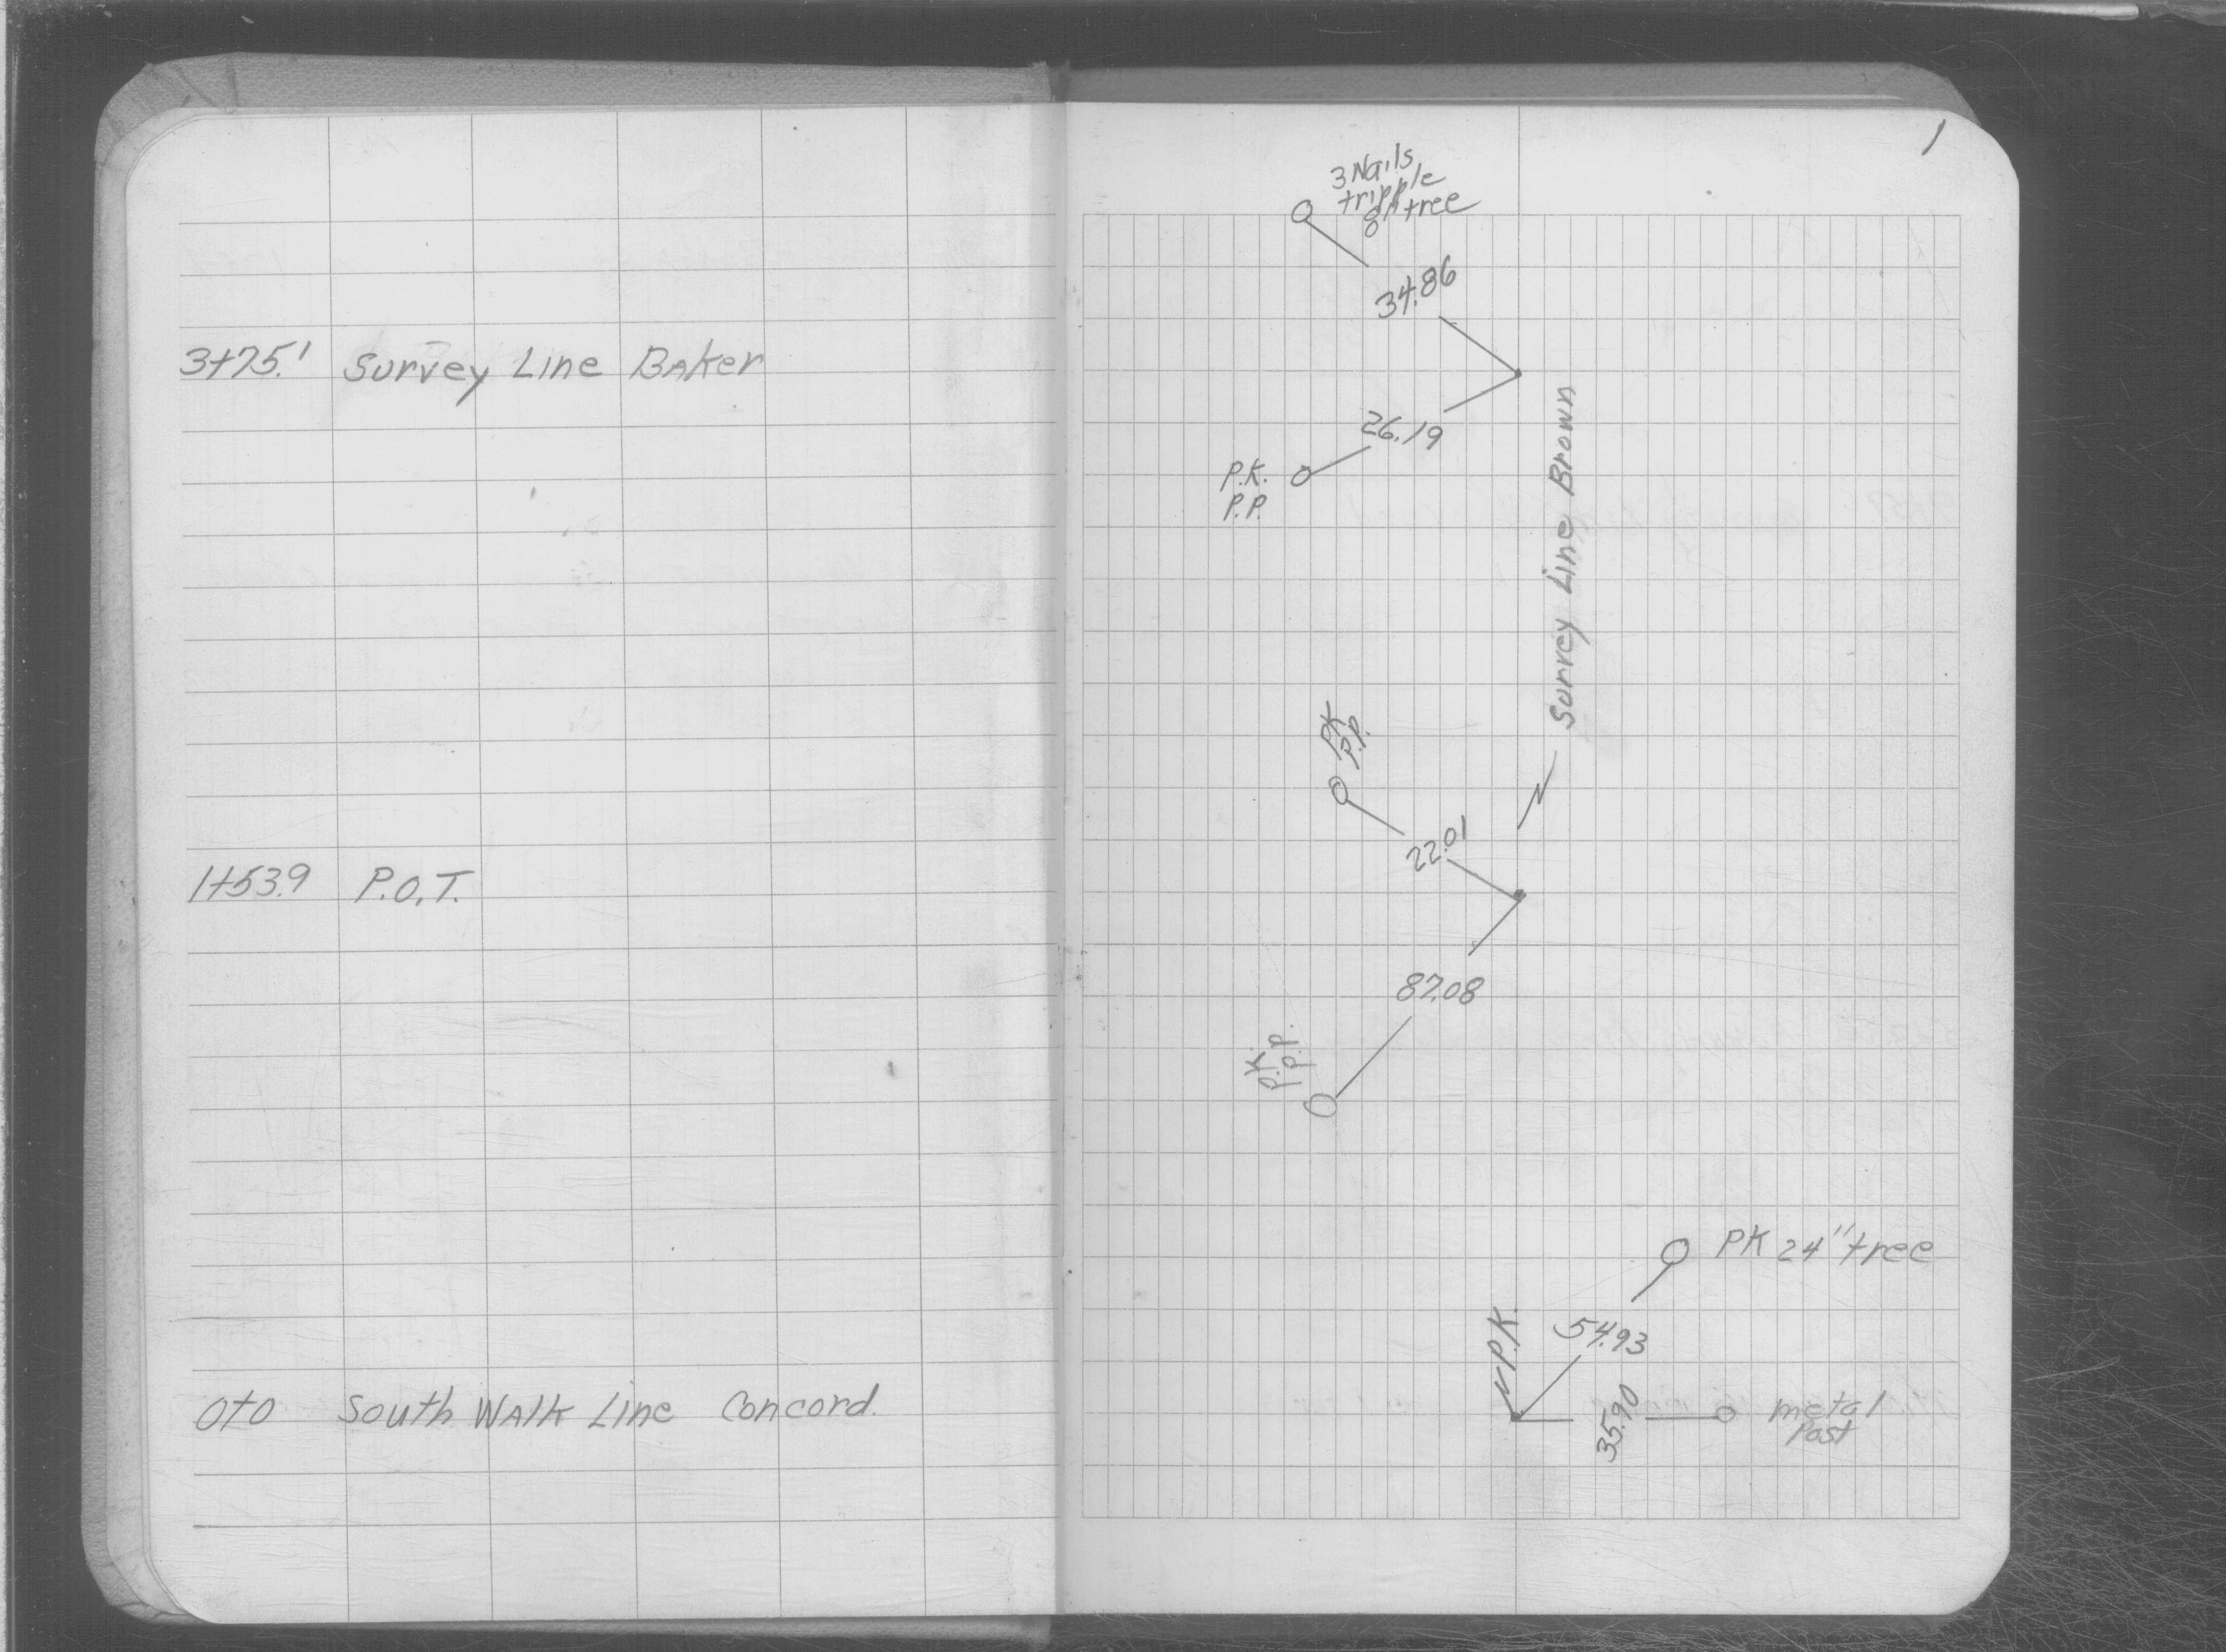 3+75.1 Survey Line Baker
1+53.9 P.O.T.
0+0 South Walk Line Concord.
1
3 Nails
tripple
8" tree
34.86
26.19
P.K.
P.P.
Survey Line Brown
PK
P.P.
22.01
87.08
P.K.
P.P.
PK 24" tree
54.93
P.K.
35.90
metal
Post